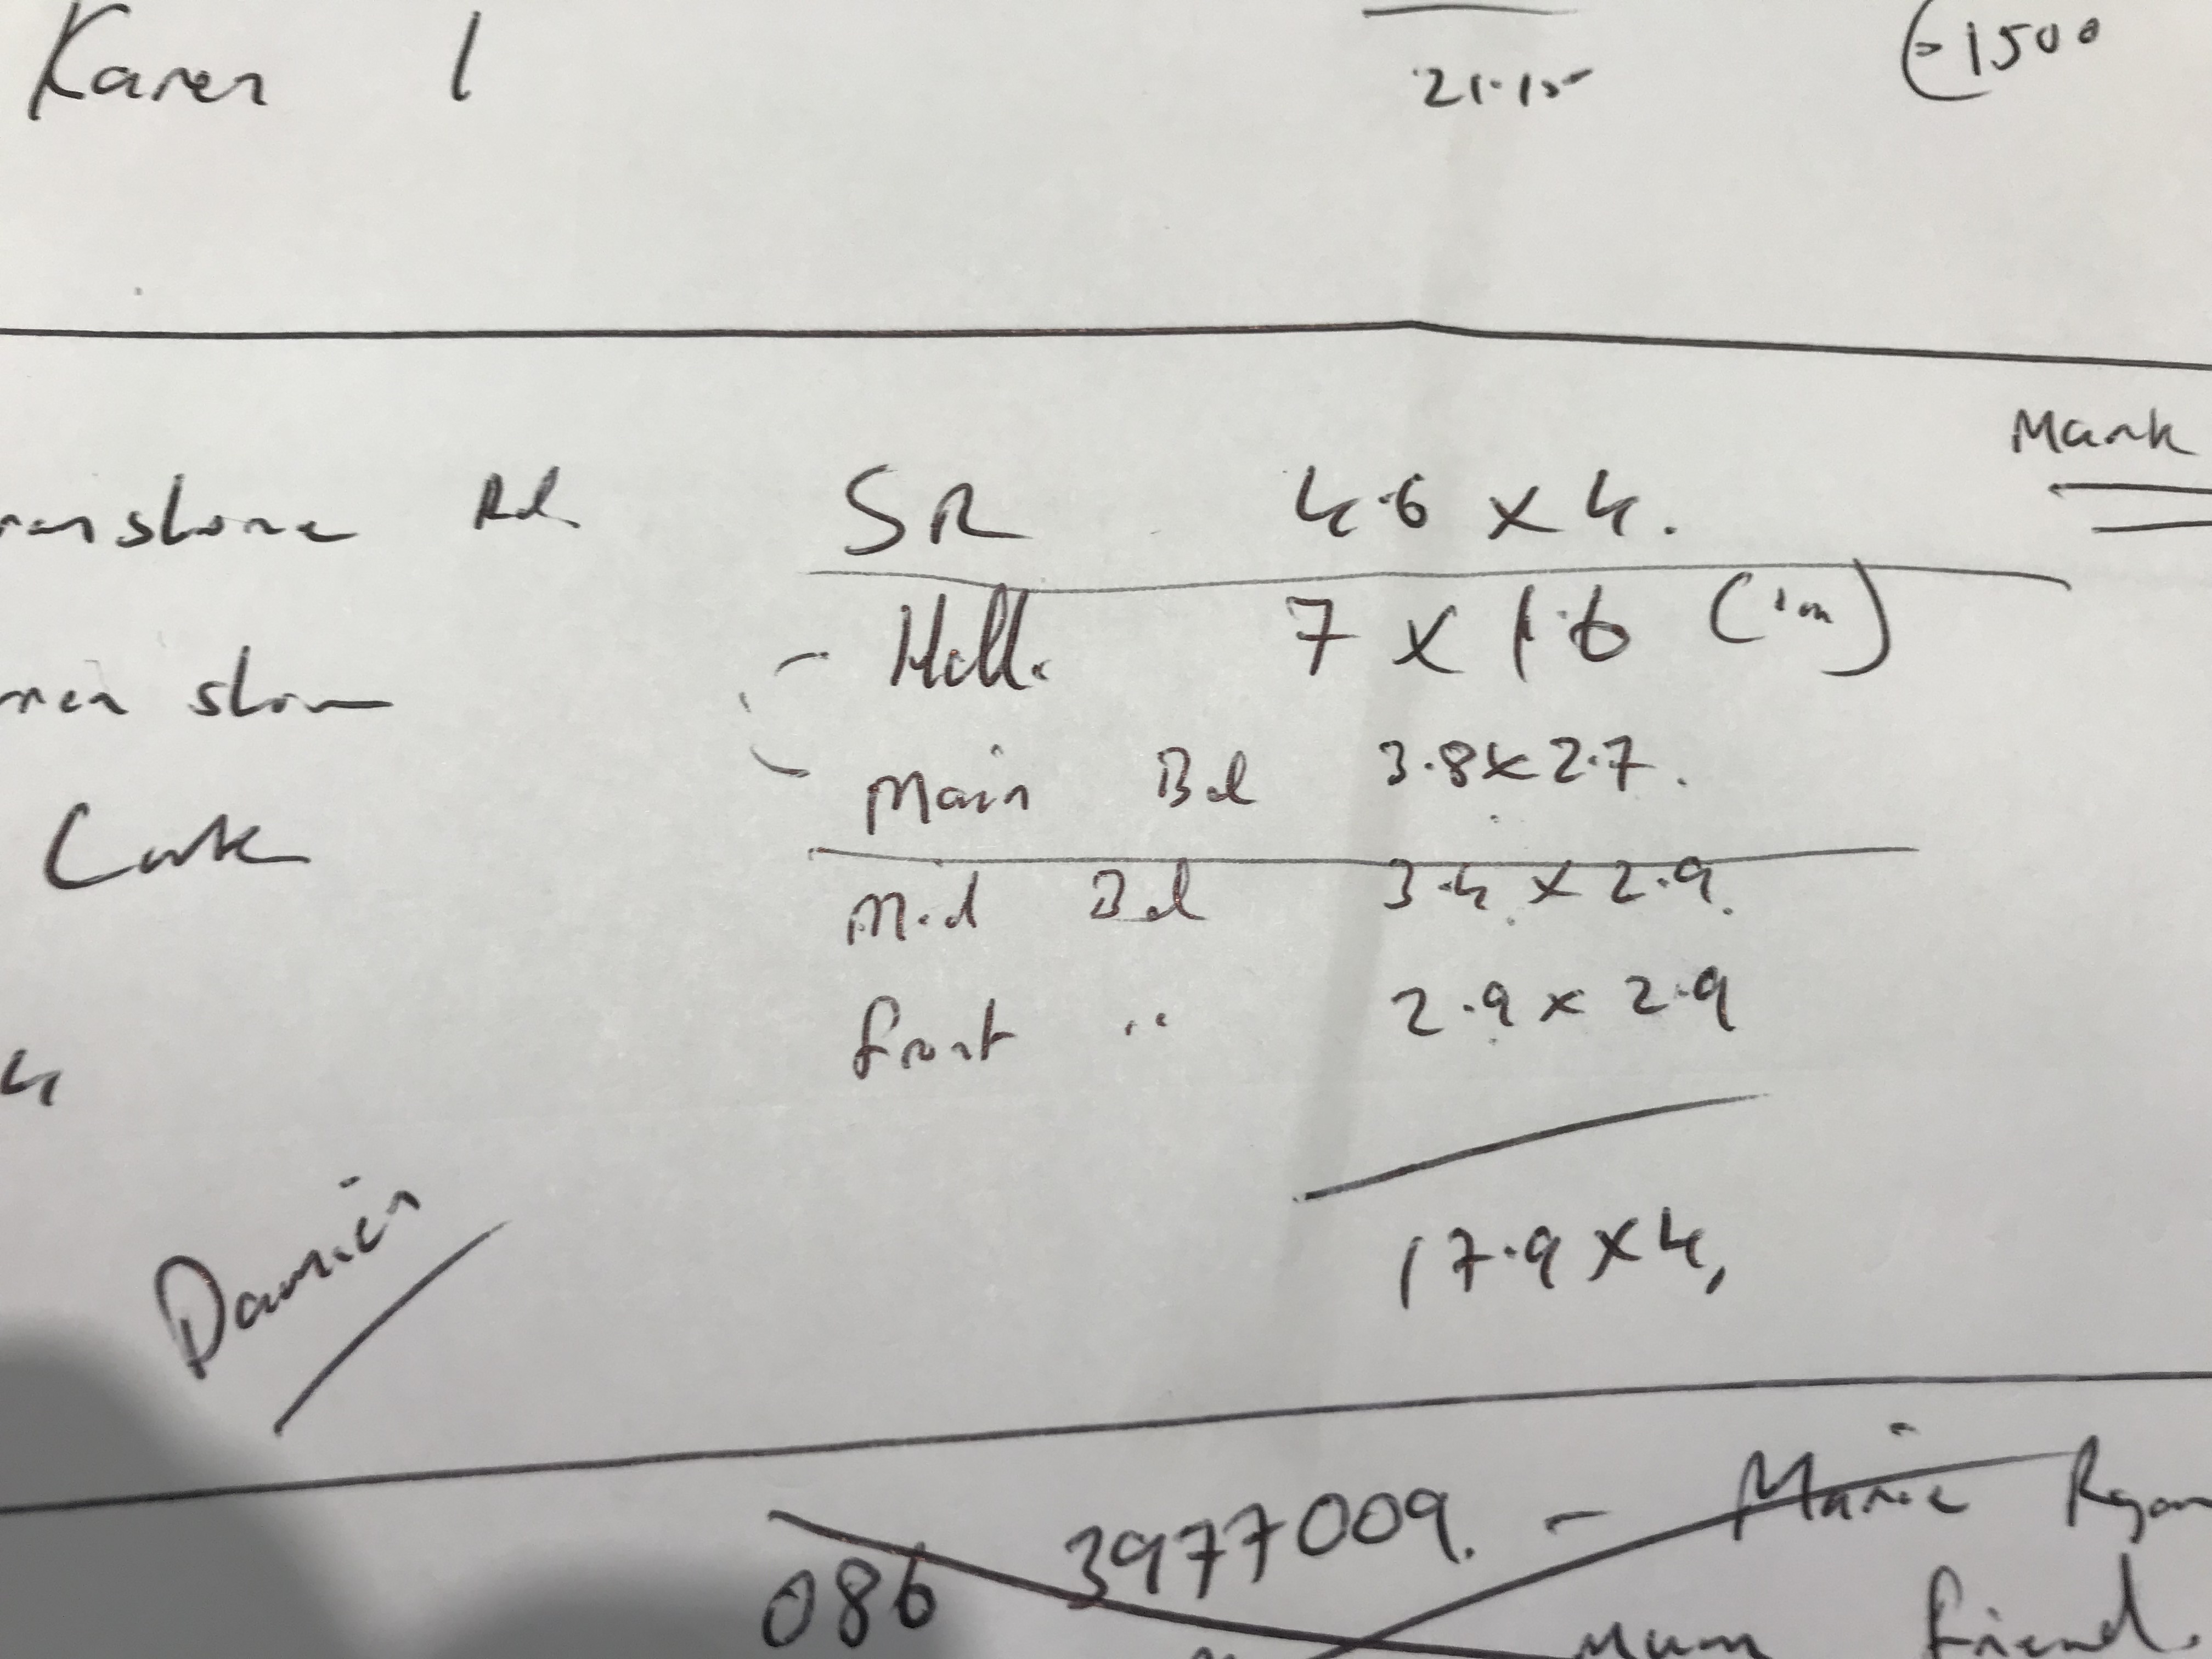 Karen 1 21.15 €1500
Mark
Rd. SR 4.6 x 4.
Hall. 7 x 1.6 (1m)
Main Bd 3.8 x 2.7.
Cork
Mid Bd 3.4 x 2.9.
front " 2.9 x 2.9
4
17.9 x 4,
Damien
086 3977009. - Marie Ryan
Mum friend.